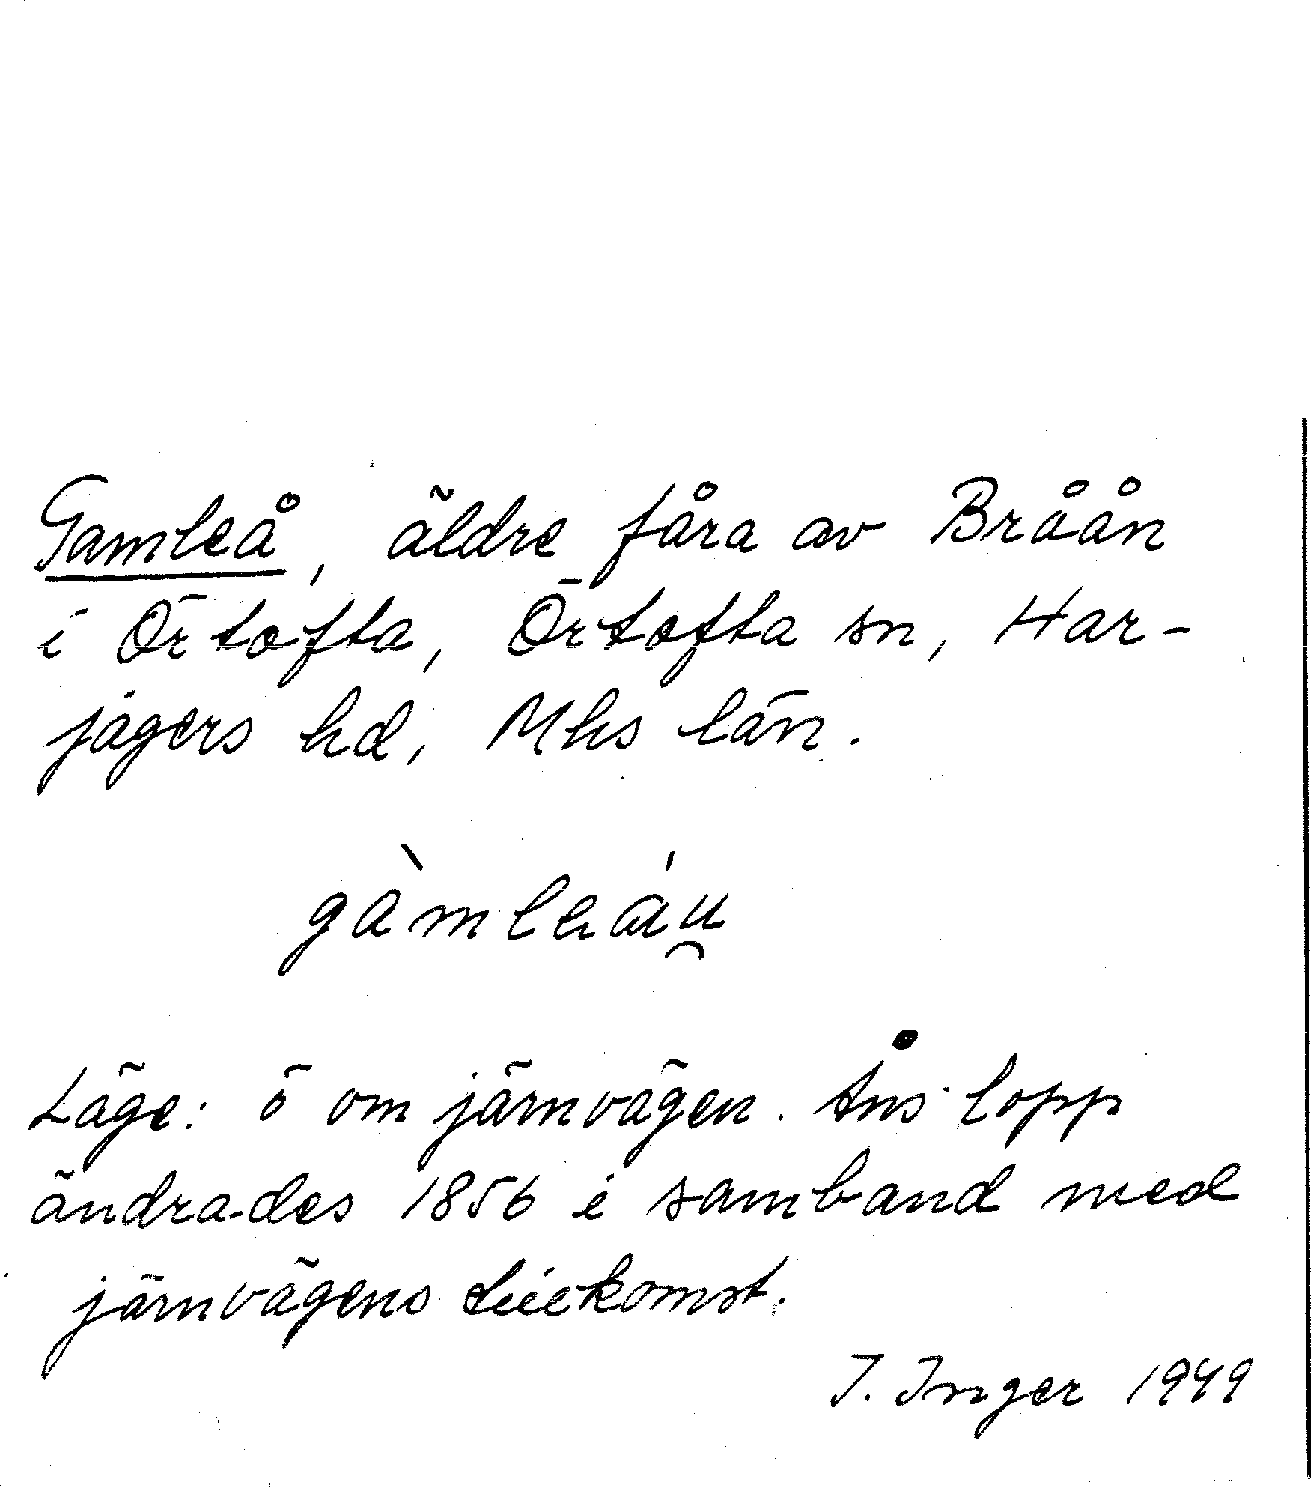 Gamleå, äldre fåra av Bråån
i Örtofta, Örtofta sn, Har-
jagers hd, Mhs län.
gàmleáu̯
Läge: ö om järnvägen. Åns lopp
ändrades 1856 i samband med
järnvägens tillkomst.
I. Inger 1949